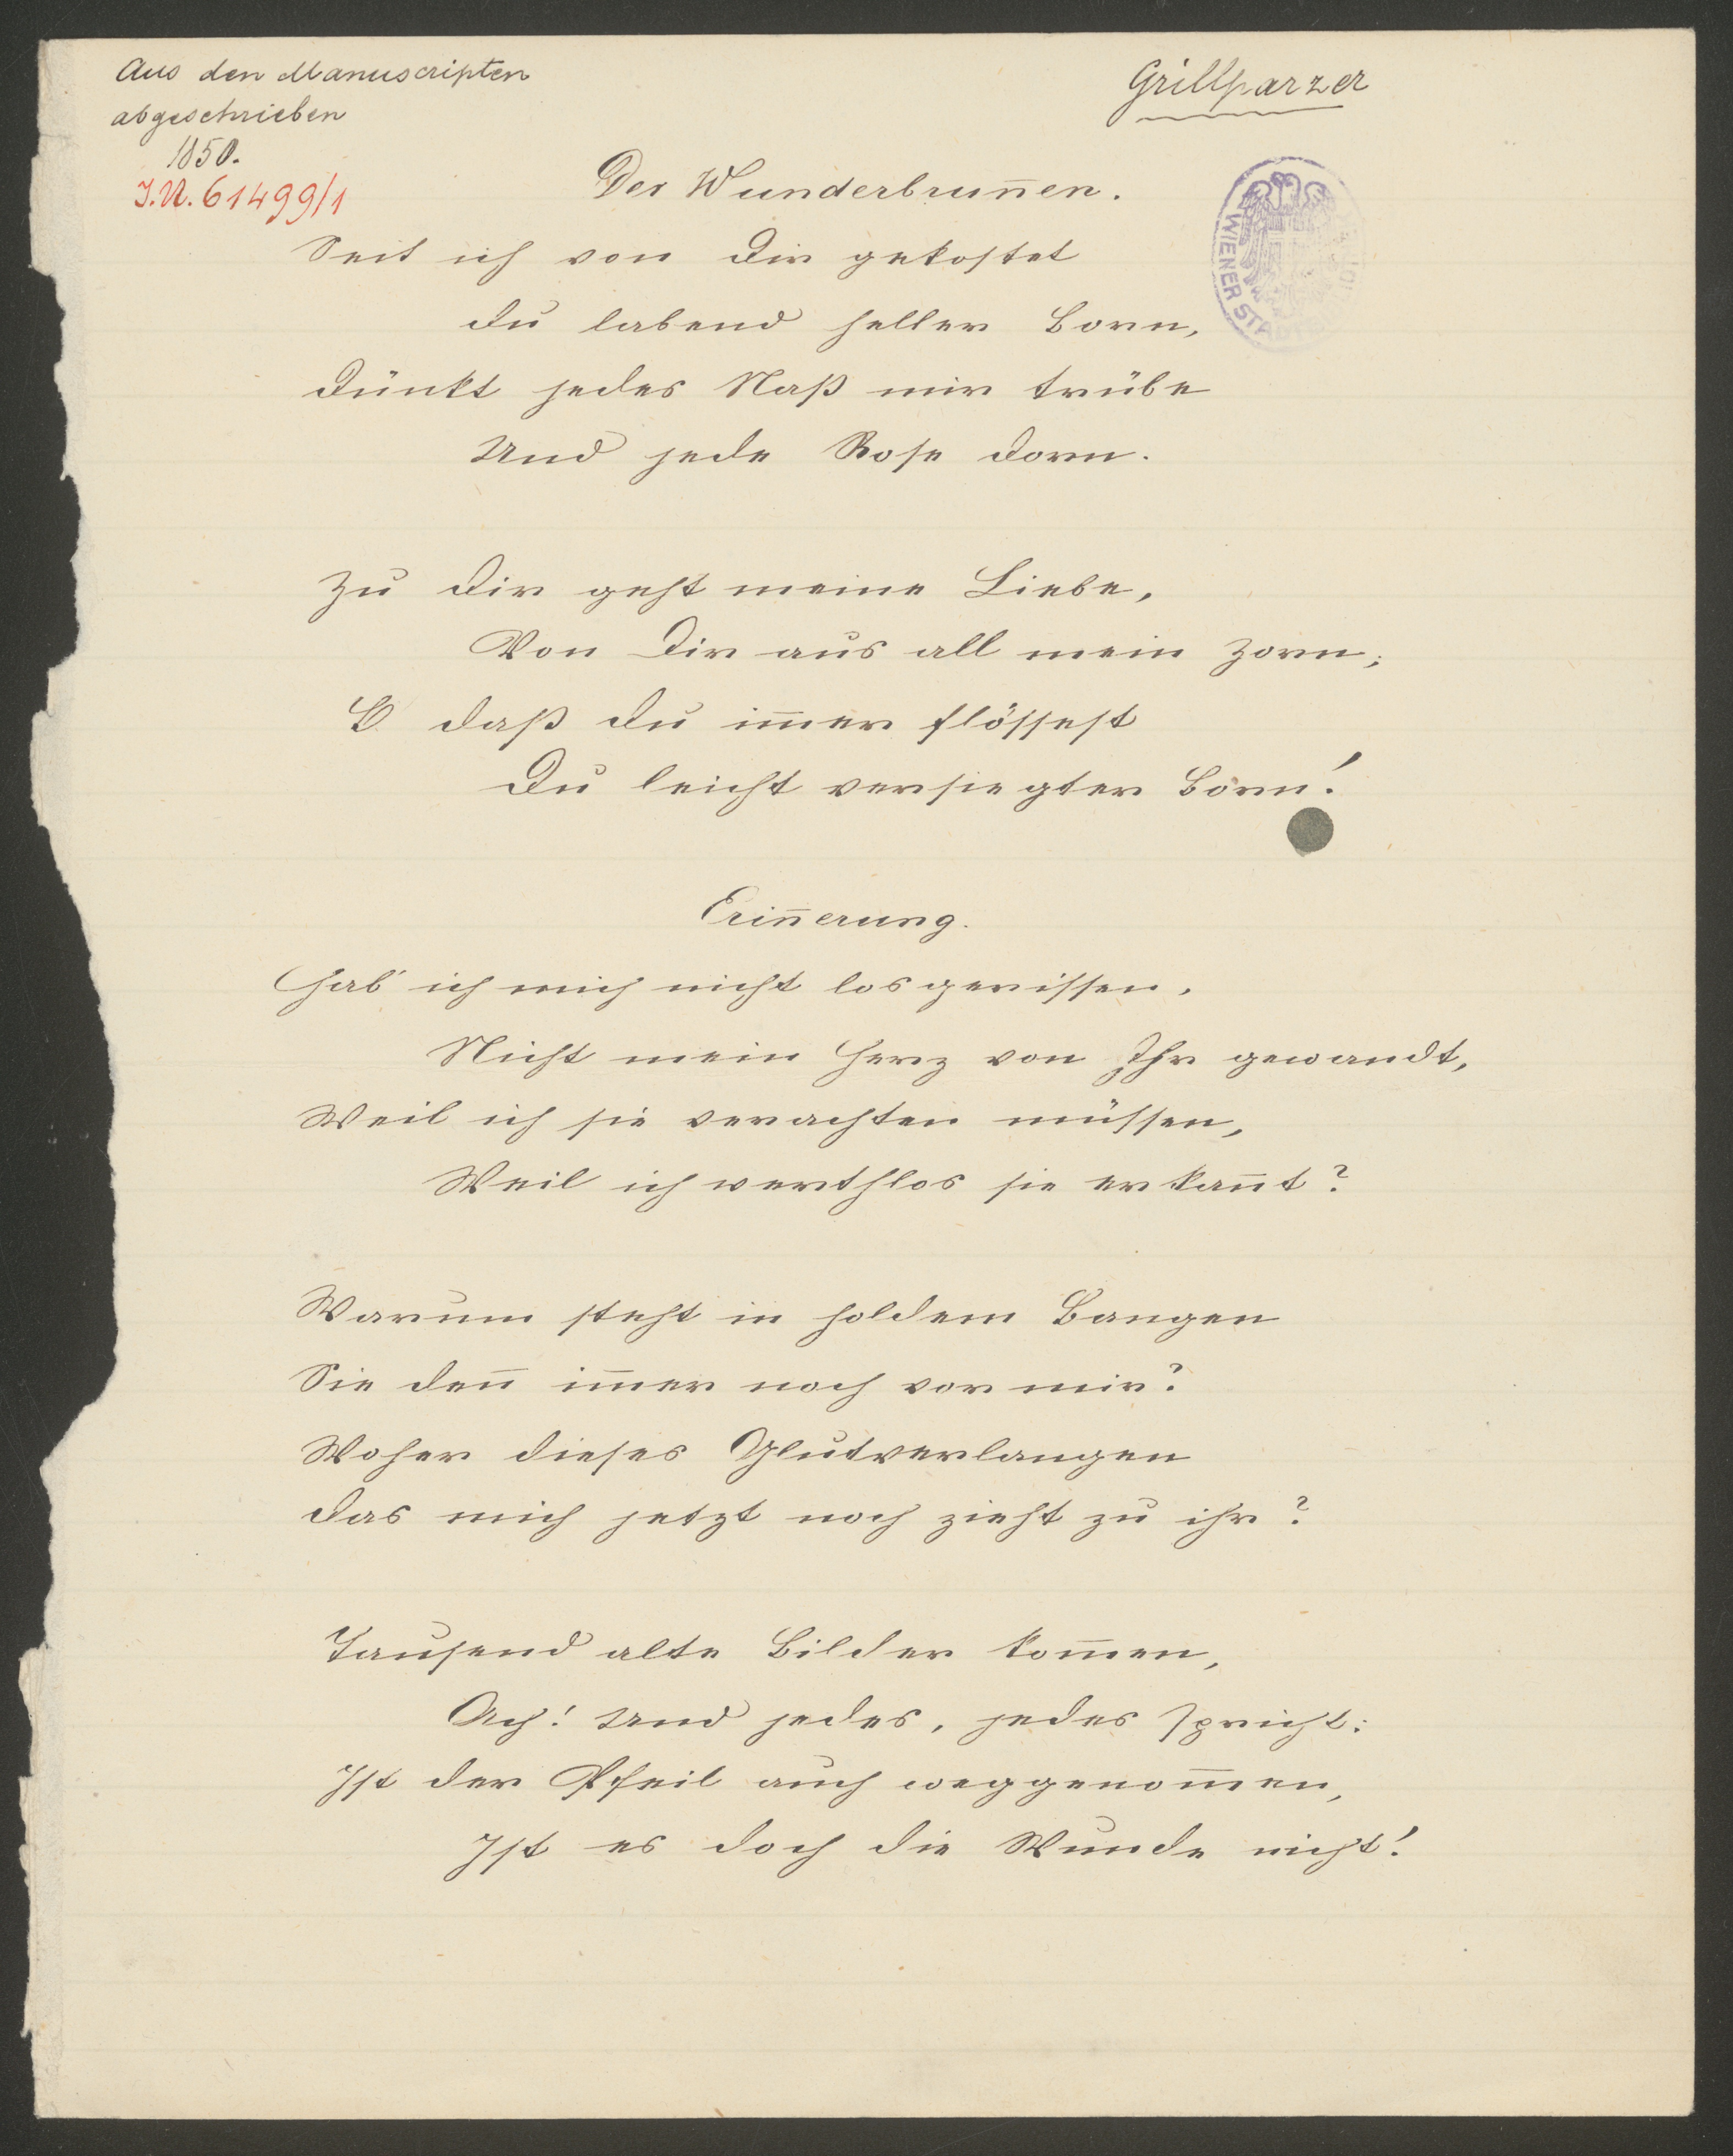 Aus den Manuscripten
abgeschrieben
1850.
J.N. 61499/1
Grillparzer
Der Wunderbrun̄en.
Seit ich von dir gekostet
du labend heller Born,
Dünkt jedes Naß mir trübe
Und jede Rose Dorn.
Zu dir geht meine Liebe,
Von Dir aus all mein Zorn;
O daß du im̄er flössest
Du leicht versiegter Born!
Erin̄erung.
Hab' ich mich nicht losgerissen,
Nicht mein Herz von Ihr gewandt,
Weil ich sie verachten müssen,
Weil ich werthlos sie erkan̄t?
Warum steht in holdem Bangen
Sie den̄ im̄er noch vor mir?
Woher dieses Glutverlangen
das mich jetzt noch zieht zu ihr?
Tausend alte Bilder kom̄en,
Ach! Und jedes, jedes spricht:
Ist der Pfeil auch weggenom̄en,
Ist es doch die Wunde nicht!
WIENER STADT